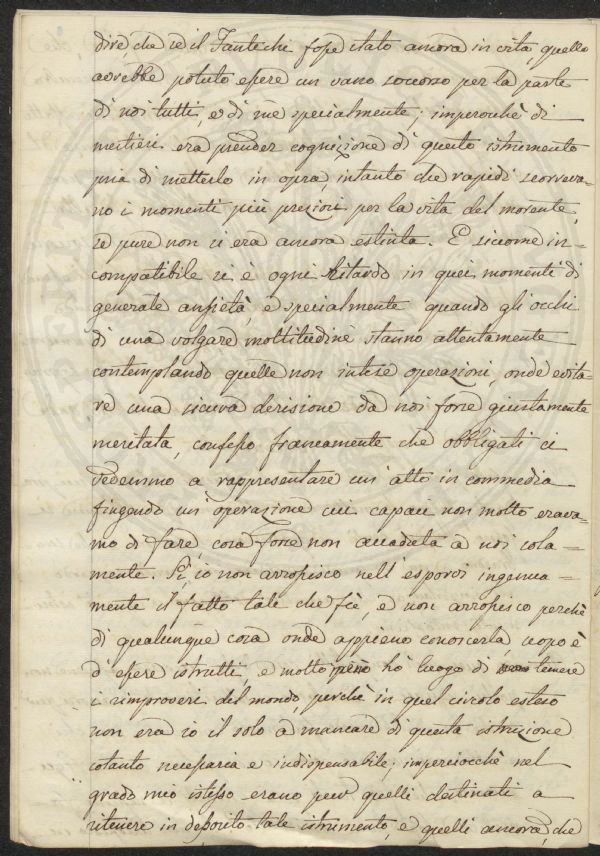 dire, che se il Fantechi fosse stato ancora in vita, quello
avrebbe potuto essere un vano soccorso per la parte
di noi tutti, e di me specialmente; imperocchè di
mestieri era prender cognizione di questo istrumento
pria di metterlo in opra, intanto che rapidi scorreva-
no i momenti più preziosi per la vita del morente,
se pure non si era ancora estinta. E siccome in-
compatibile si è ogni ritardo in quei momenti di
generale ansietà, e specialmente quando gli occhi
di una volgare moltitudine stanno attentamente
contemplando quelle non intese operazioni, onde evita-
re una sicura derisione da noi forse giustamente
meritata, confesso francamente che obbligati ci
vedemmo a rappresentare un' atto in commedia
fingendo un' operazione cui capaci non molto erava-
mo di fare, cosa forse non accaduta a noi sola-
mente. Sì, io non arrossisco nell' esporvi ingenua-
mente il fatto tale che fù, e non arrossisco perchè
di qualunque cosa onde appieno conoscerla, uopo è
d' essere istrutti, e molto meno hò luogo di temere
i rimproveri del mondo, perchè in quel circolo esteso
non era io il solo a mancare di questa istruzione
cotanto necessaria e indispensabile; imperciocchè nel
grado mio istesso erano pur quelli destinati a
ritenere in deposito tale istrumento, e quelli ancora, che